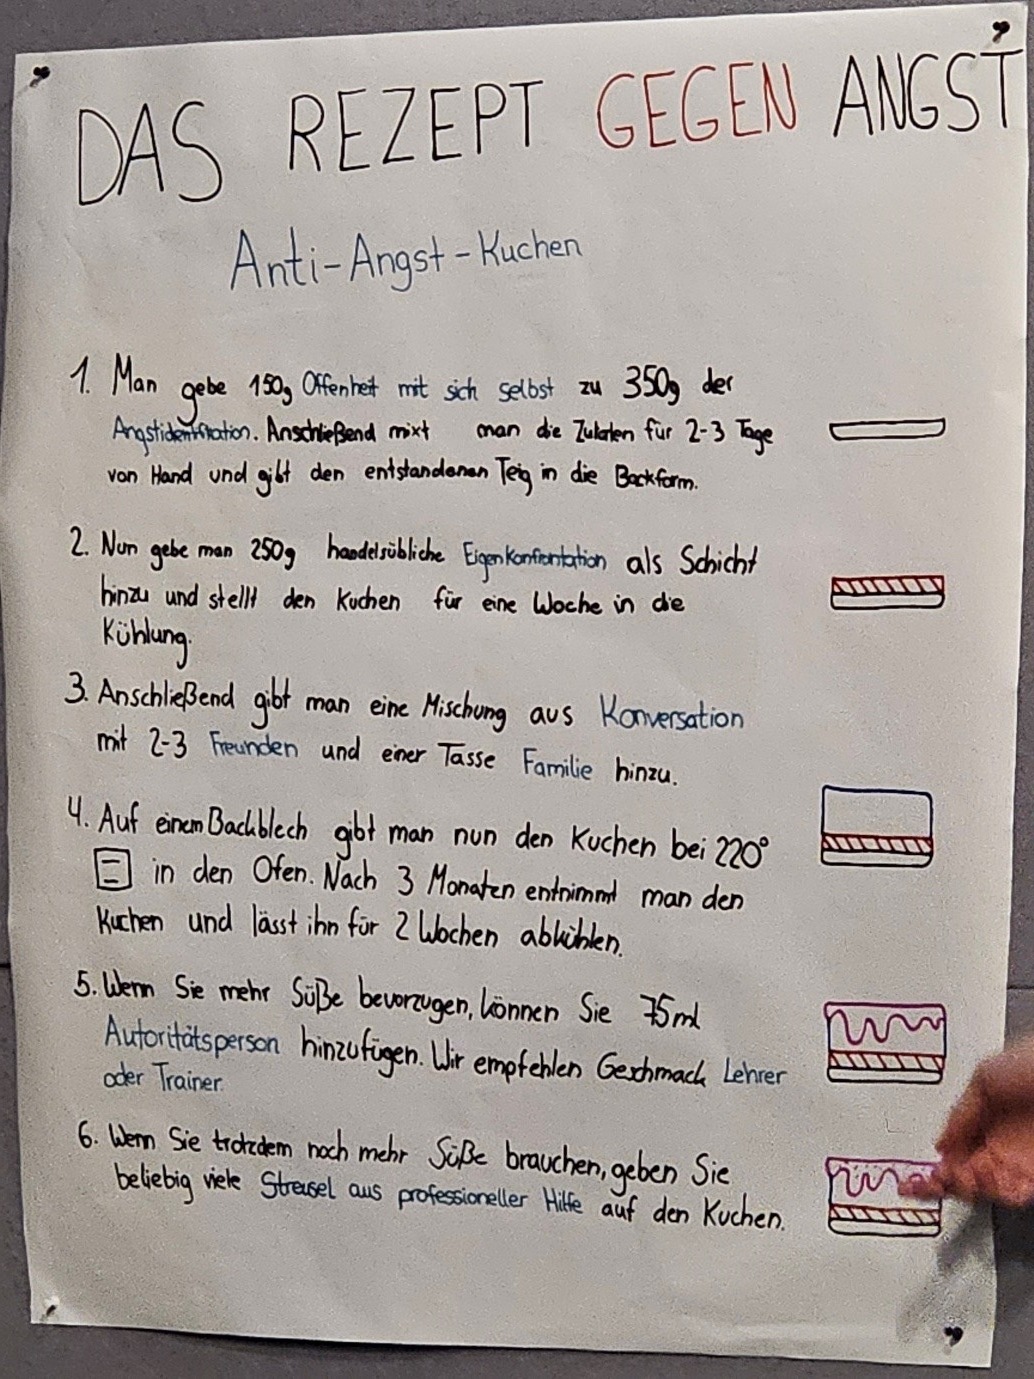 DAS REZEPT GEGEN ANGST
Anti-Angst-Kuchen
1. Man gebe 150g Offenheit mit sich selbst zu 350g der
Angstidentifikation. Anschließend mixt man die Zutaten für 2-3 Tage
von Hand und gibt den entstandenen Teig in die Backform.
2. Nun gebe man 250g handelsübliche Eigenkonfrontation als Schicht
hinzu und stellt den Kuchen für eine Woche in die
Kühlung.
3. Anschließend gibt man eine Mischung aus Konversation
mit 2-3 Freunden und einer Tasse Familie hinzu.
4. Auf einem Backblech gibt man nun den Kuchen bei 220°
in den Ofen. Nach 3 Monaten entnimmt man den
Kuchen und lässt ihn für 2 Wochen abkühlen.
5. Wenn Sie mehr Süße bevorzugen, können Sie 75ml
Autoritätsperson hinzufügen. Wir empfehlen Geschmack Lehrer
oder Trainer.
6. Wenn Sie trotzdem noch mehr Süße brauchen, geben Sie
beliebig viele Streusel aus professioneller Hilfe auf den Kuchen.